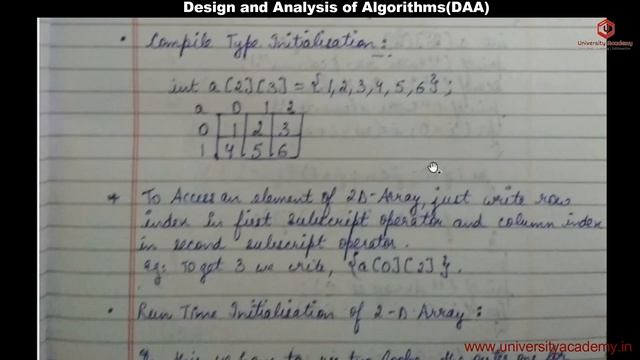 Design and Analysis of Algorithms(DAA)
University Academy
• Compile Type Initialisation :
int a[2][3] = {1,2,3,4,5,6};
a 0 1 2
0 1 2 3
1 4 5 6
* To Access an element of 2D-Array, just write row
index in first subscript operator and column index
in second subscript operator.
Eg: To get 3 we write, {a[0][2]}.
• Run Time Initialisation of 2-D Array :
www.universityacademy.in